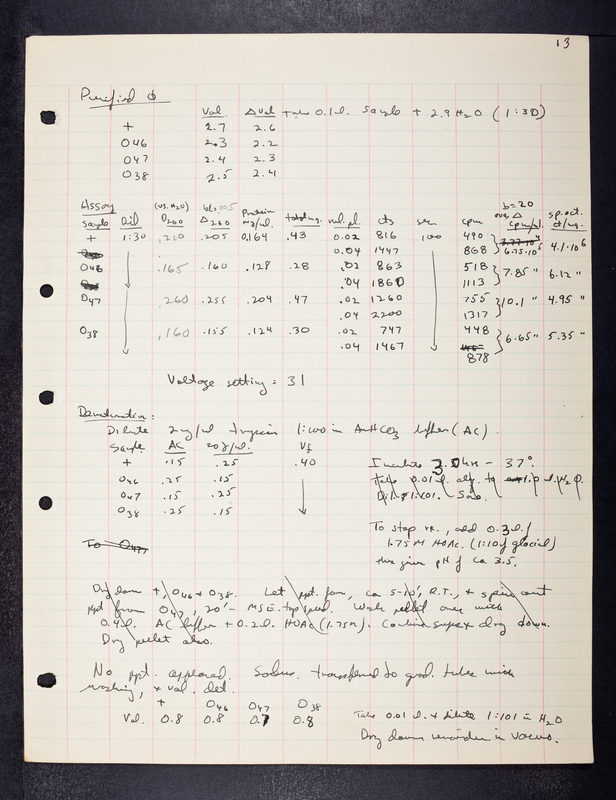 13
Purified φ
Vol. Δ Vol Take 0.1 ml. sample + 2.9 H2O (1:30)
+ 2.7 2.6
O46 2.3 2.2
O47 2.4 2.3
O38 2.5 2.4
Assay (vs. H2O) Protein b=20
Sample Dil D260 Δ260 mg/ml. total mg. ml. pl. cts sec cpm cpm/ml. sp. act. ct/mg.
+ 1:30 .210 .205 0.164 .43 0.02 816 100 490 3.77·10⁴ 4.1·10⁶
0.04 1447 868 6.75·10⁵
O46 .165 .160 .128 .28 .02 863 518 7.85 " 6.12 "
.04 1860 1113
O47 .260 .255 .204 .47 .02 1260 755 10.1 " 4.95 "
.04 2200 1317
O38 .160 .155 .124 .30 .02 747 448 6.65 " 5.35 "
.04 1467
878
Voltage setting: 31
Denaturation:
Dilute 2 mg/ml trypsin 1:100 in AmHCO3 buffer (AC).
Sample AC Vf
+ .15 .25 .40 Incubate 3.0 hrs – 37°.
O46 .25 .15 Take 0.01 ml. to
O47 .15 .25 Dil. 1:101.
O38 .25 .15
To O47
To stop rx., add 0.3 ml. of
1.75 M HOAc. (1:10 of glacial)
this gives pH of ca 3.5.
Dry down +, O46 + O38. Let ppt. form, ca 5-10', R.T., + spin out
ppt from O47, 20'– MSE top speed. Wash pellet once with
0.4 ml. AC buffer + 0.2 ml. HOAc (1.75M). Combine supes + dry down.
Dry pellet also.
No ppt. appeared. Solns. transferred to grad. tubes with
washing, + vol. det.
+ O46 O47 O38
Vol. 0.8 0.8 0.7 0.8
Take 0.01 ml. + dilute 1:101 in H2O
Dry down remainder in vacuo.